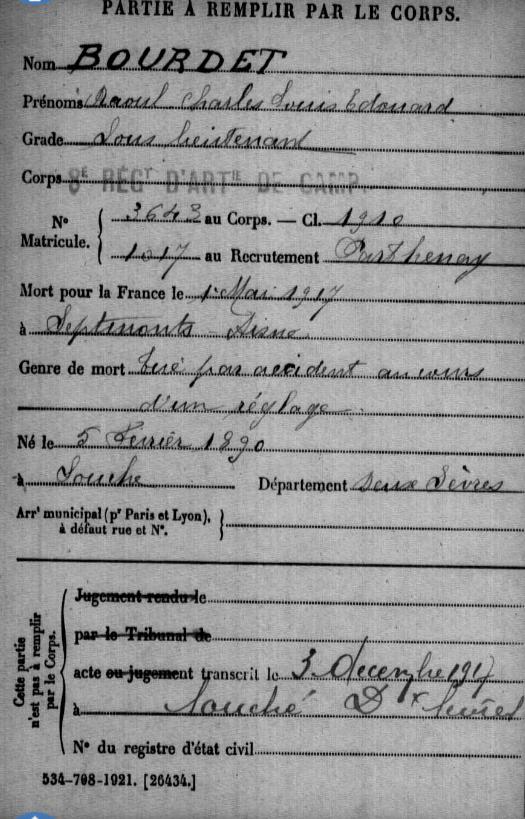 PARTIE À REMPLIR PAR LE CORPS.
Nom BOURDET
Prénoms Raoul Charles Louis Edouard
Grade Sous lieutenant
Corps 8E RÉGT D'ARTIE DE CAMP.
N° Matricule. { 3643 au Corps. — Cl. 1910
1017 au Recrutement Parthenay
Mort pour la France le 1er Mai 1917
à Septmonts - Aisne
Genre de mort tué par accident au cours
d'un réglage
Né le 5 Février 1890
à Souche Département Deux Sèvres
Arrt municipal (pr Paris et Lyon), }
à défaut rue et N°.
Cette partie
n'est pas à remplir
par le Corps.
Jugement rendu le
par le Tribunal de
acte ou jugement transcrit le 3 decembre 1917
à Souché Dx Sèvres
N° du registre d'état civil
534-708-1921. [26434.]